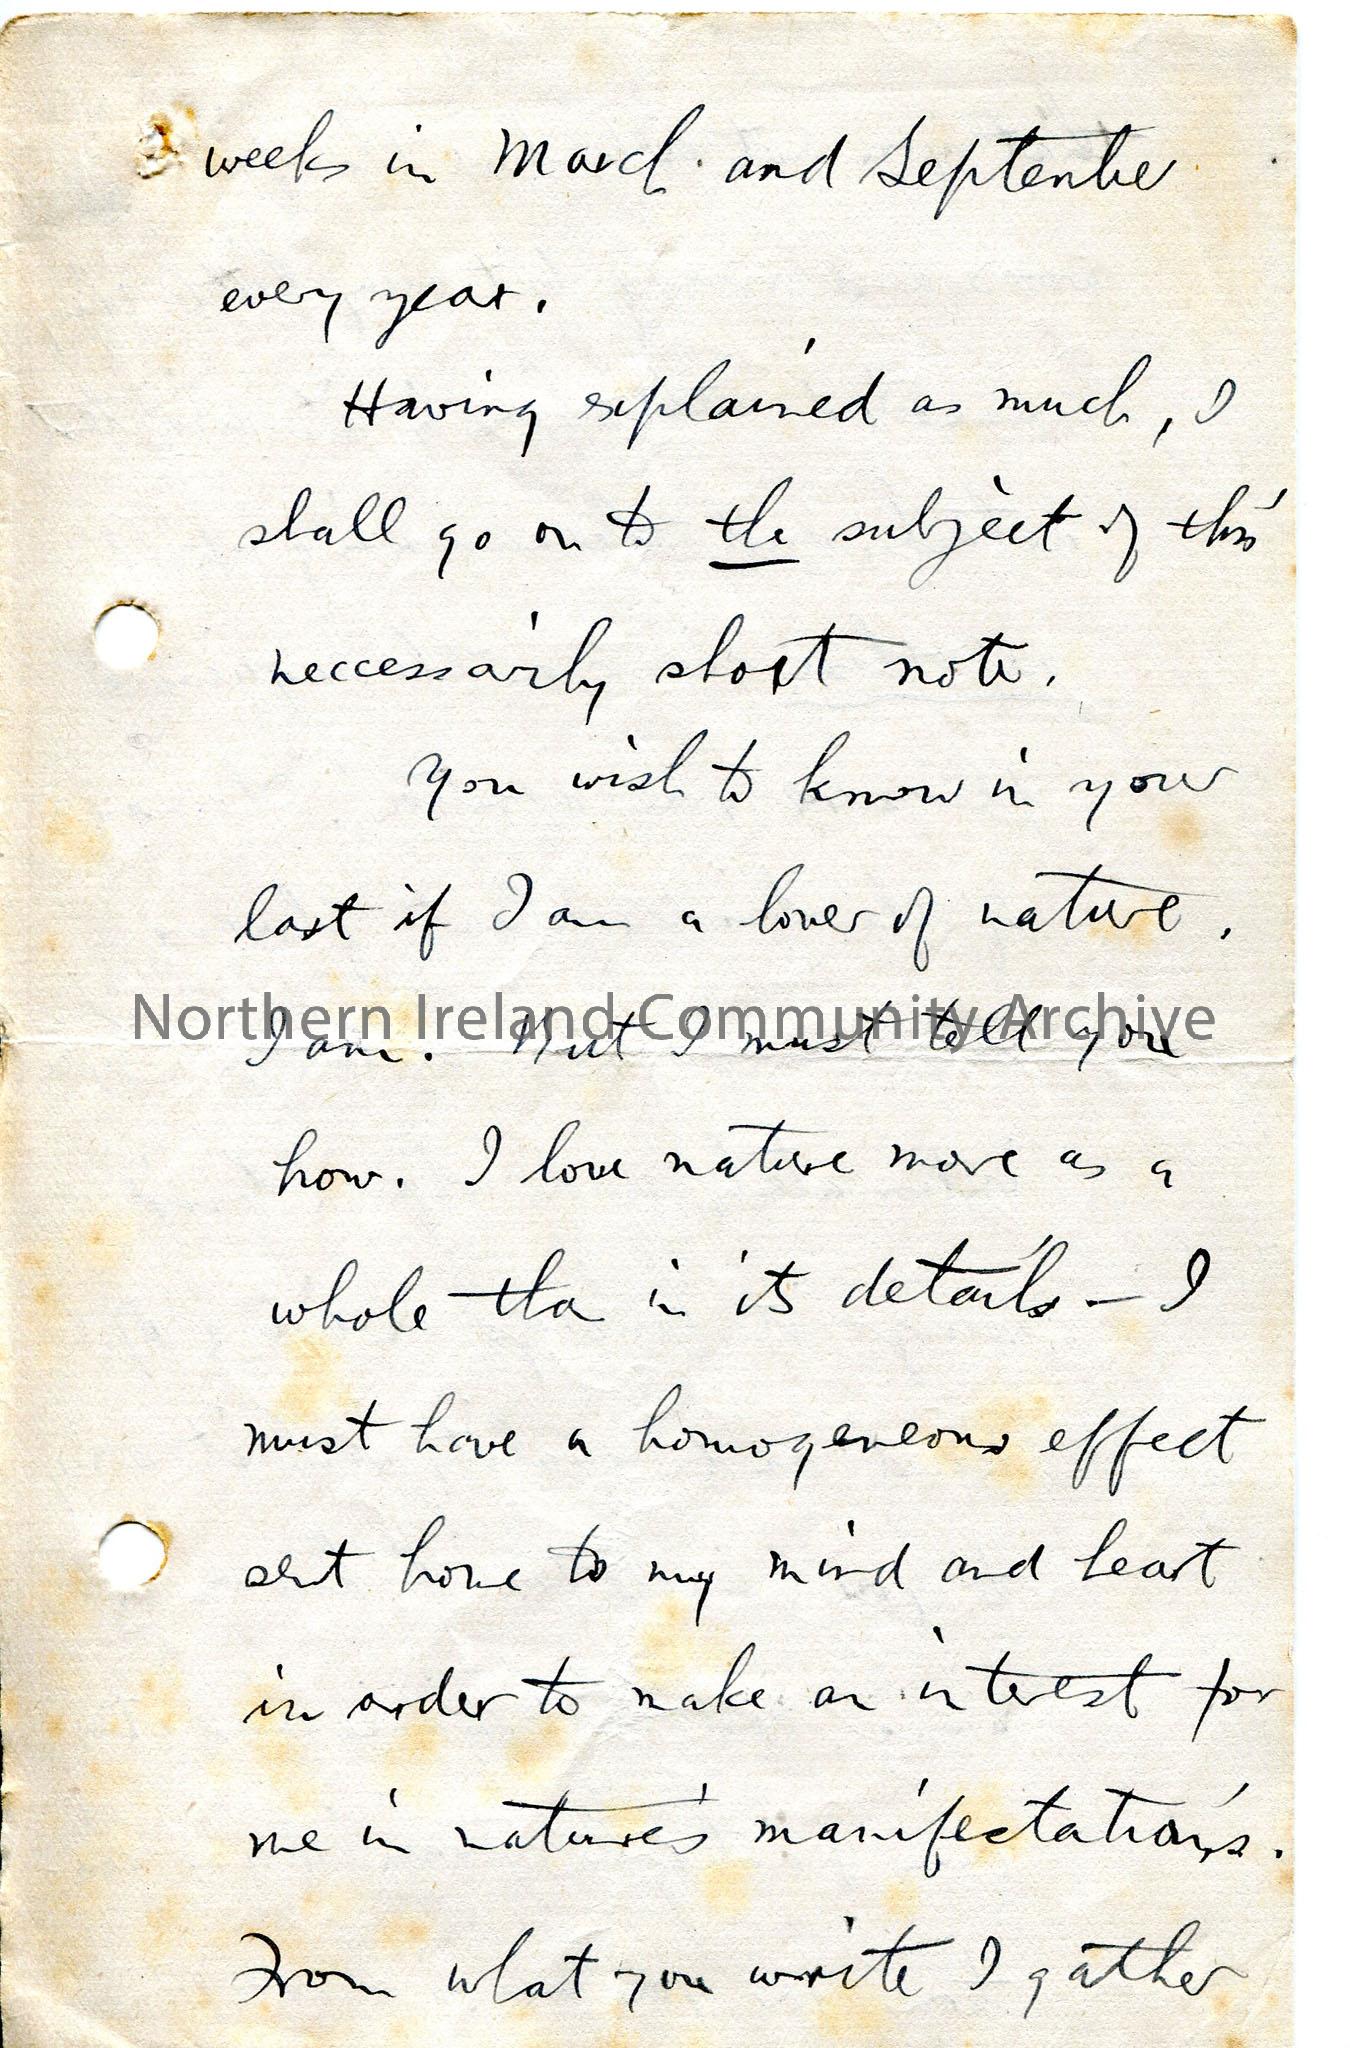 weeks in March and September
every year.
Having explained as much, I
shall go on to the subject of this
neccessarily short note.
You wish to know in your
last if I am a lover of nature.
I am. But I must tell you
how. I love nature more as a
whole than in its details – I
must have a homogeneous effect
sent home to my mind and heart
in order to make an interest for
me in nature's manifestations.
From what you write I gather
Northern Ireland Community Archive